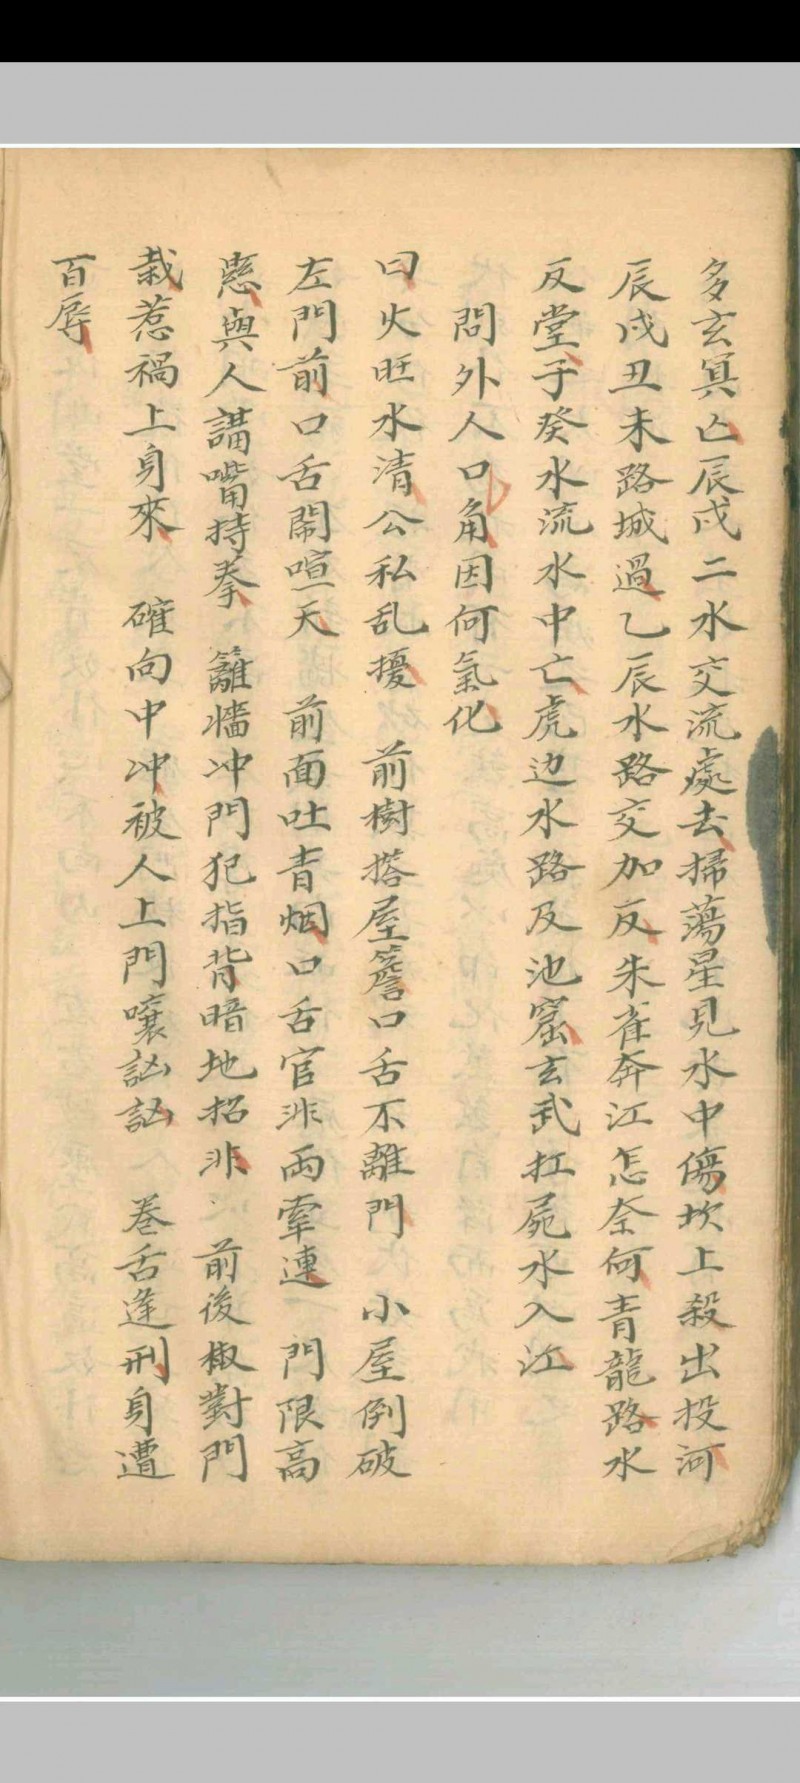 多玄冥亡辰戌二水交流處去掃蕩星見水中傷坎上殺出投河
辰戌丑未路城過乙辰水路交加反朱雀奔江怎奈何青龍路水
反堂子癸水流水中亡虎边水路及池窟玄武扛屍水入江
問外人口角因何氣化
曰火旺水清公私乱擾 前樹搭屋簷口舌不離門 小屋倒破
左門前口舌鬧喧天 前面吐青烟口舌官非兩牽連 門限高
懸與人講嘴持拳 籬墻冲門犯指背暗地招非 前後椒對門
栽惹禍上身來 確向中冲被人上門嚷訩訩 卷舌逢刑身遭
百辱